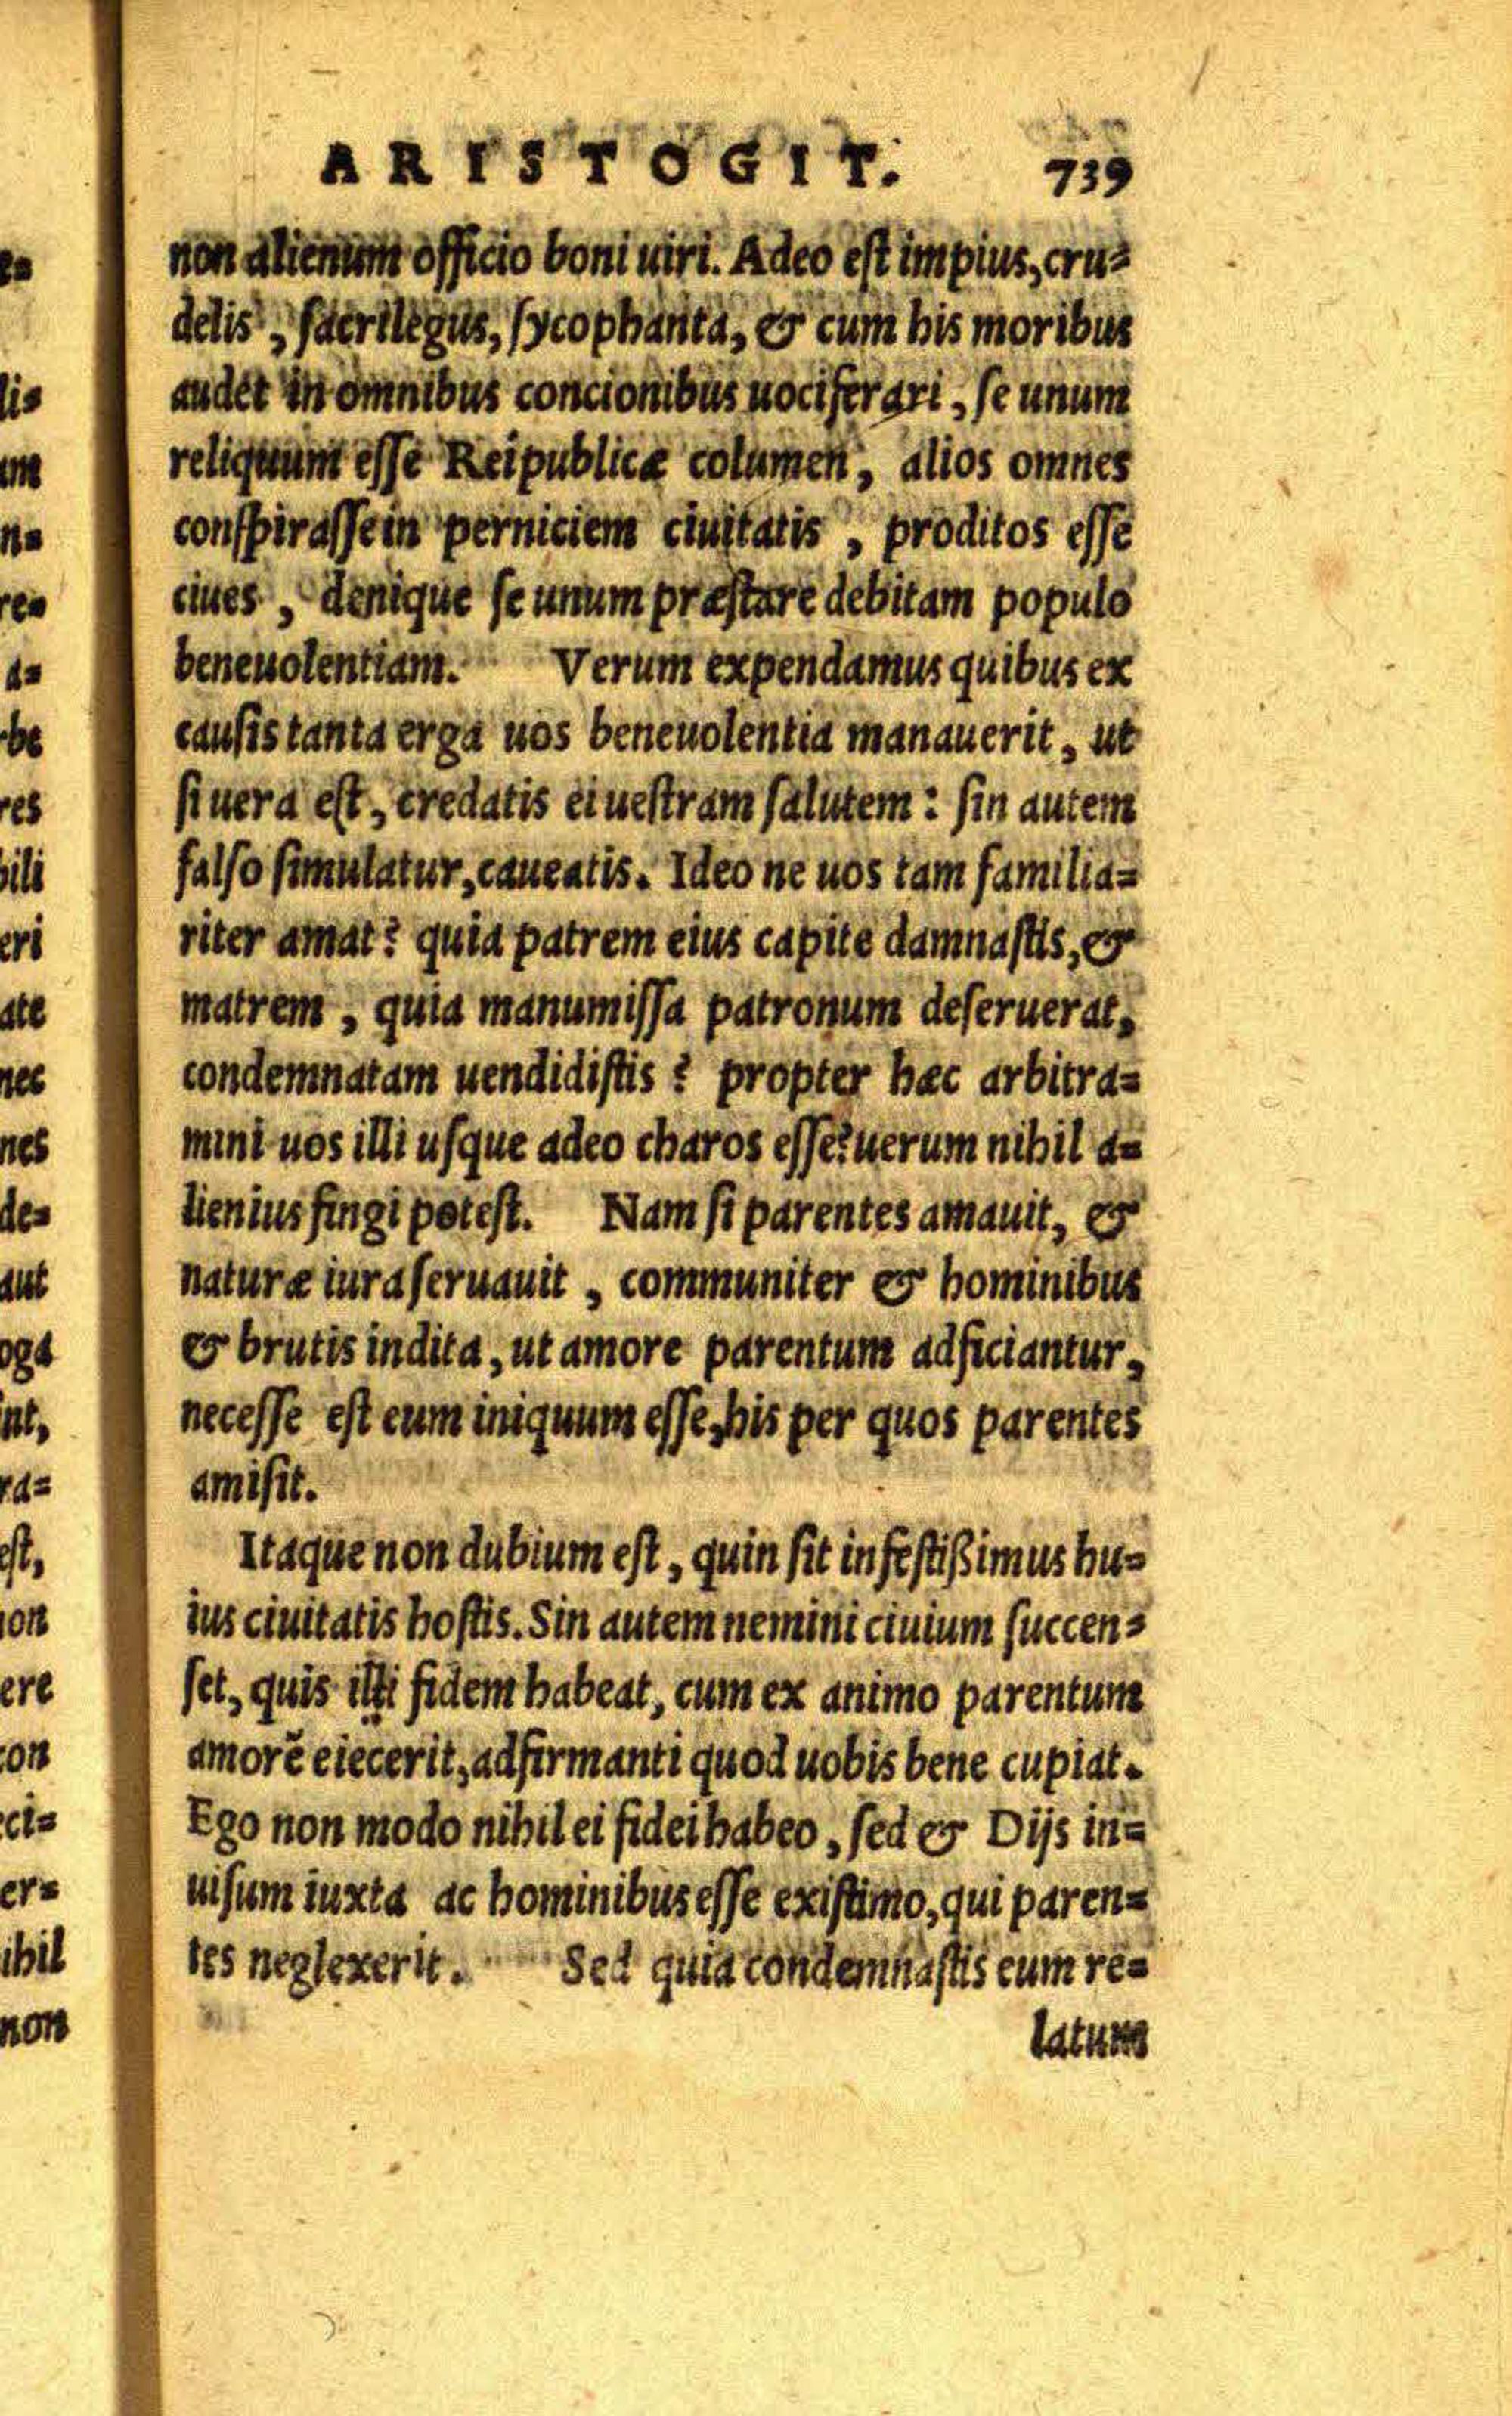 ARISTOGIT. 739
non alienum officio boni uiri. Adeo eſt impius, cru=
delis, ſacrilegus, ſycophanta, & cum his moribus
audet in omnibus concionibus uociferari, ſe unum
reliquum eſſe Reipublicæ columen, alios omnes
conſpiraſſe in perniciem ciuitatis, proditos eſſe
ciues, denique ſe unum præſtare debitam populo
beneuolentiam. Verum expendamus quibus ex
cauſis tanta erga uos beneuolentia manauerit, ut
ſi uera eſt, credatis ei ueſtram ſalutem: ſin autem
falſo ſimulatur, caueatis. Ideo ne uos tam familia=
riter amat? quia patrem eius capite damnaſtis, &
matrem, quia manumiſſa patronum deſeruerat,
condemnatam uendidiſtis? propter hæc arbitra=
mini uos illi uſque adeo charos eſſe? uerum nihil a=
lienius fingi poteſt. Nam ſi parentes amauit, &
naturæ iura ſeruauit, communiter & hominibus
& brutis indita, ut amore parentum adficiantur,
neceſſe eſt eum iniquum eſſe, his per quos parentes
amiſit.
Itaque non dubium eſt, quin ſit infeſtißimus hu=
ius ciuitatis hoſtis. Sin autem nemini ciuium ſuccen=
ſet, quis illi fidem habeat, cum ex animo parentum
amorē eiecerit, adfirmanti quod uobis bene cupiat.
Ego non modo nihil ei fidei habeo, ſed & Dijs in=
uiſum iuxta ac hominibus eſſe exiſtimo, qui paren=
tes neglexerit. Sed quia condemnaſtis eum re=
latum